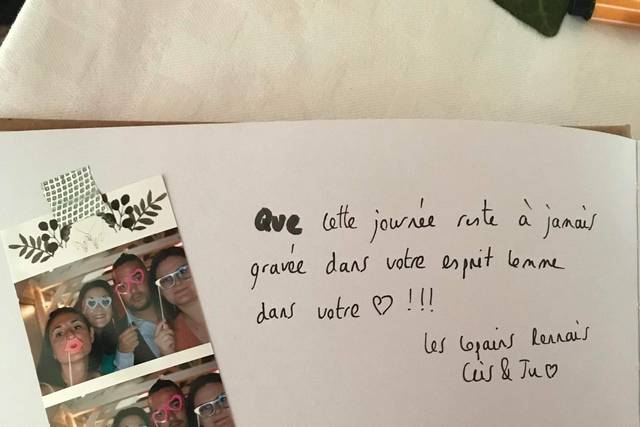 Que cette journée reste à jamais
gravée dans votre esprit comme
dans votre ♡ !!!
Les copains Rennais
Céis & Ju ♡